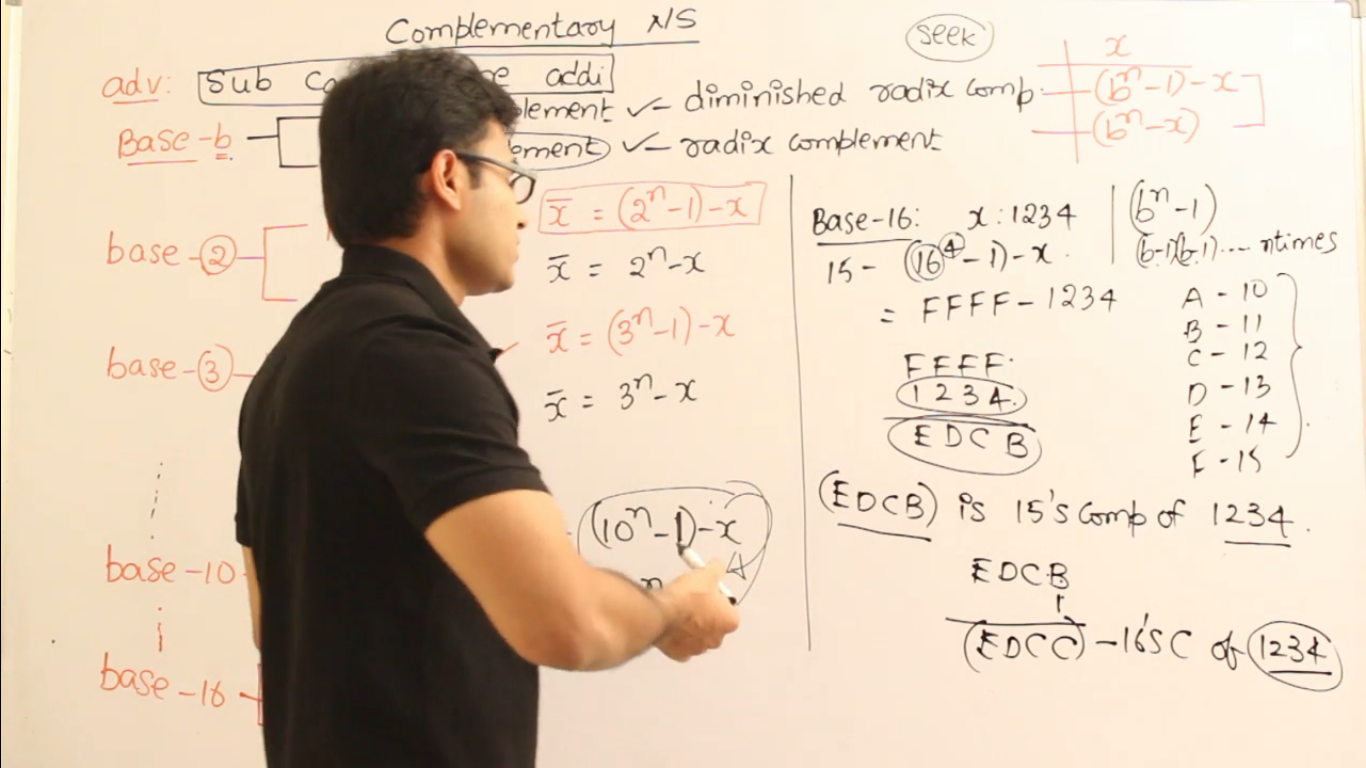 Complementary N/S
seek
adv: Sub addi
Base-b
plement ✓– diminished radix comp.
ement ✓– radix complement
x
(bⁿ-1)-x
(bⁿ-x)
base-2
x̄ = (2ⁿ-1)-x
x̄ = 2ⁿ-x
base-3
x̄ = (3ⁿ-1)-x
x̄ = 3ⁿ-x
base-10
(10ⁿ-1)-x
n
base-16
Base-16: x:1234
15 - (16⁴-1)-x.
= FFFF-1234
FFFF
1234
EDCB
(bⁿ-1)
(b-1)(b-1).... ntimes
A - 10
B - 11
C - 12
D - 13
E - 14
F - 15
(EDCB) is 15's comp of 1234.
EDCB
1
(EDCC) -16'SC of 1234